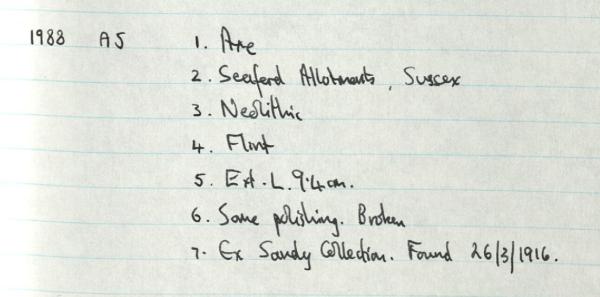 1988 A5 1. Axe
2. Seaford Allotments, Sussex
3. Neolithic
4. Flint
5. Ext. L. 9.4cm.
6. Some polishing. Broken
7. Ex Sandy Collection. Found 26/3/1916.